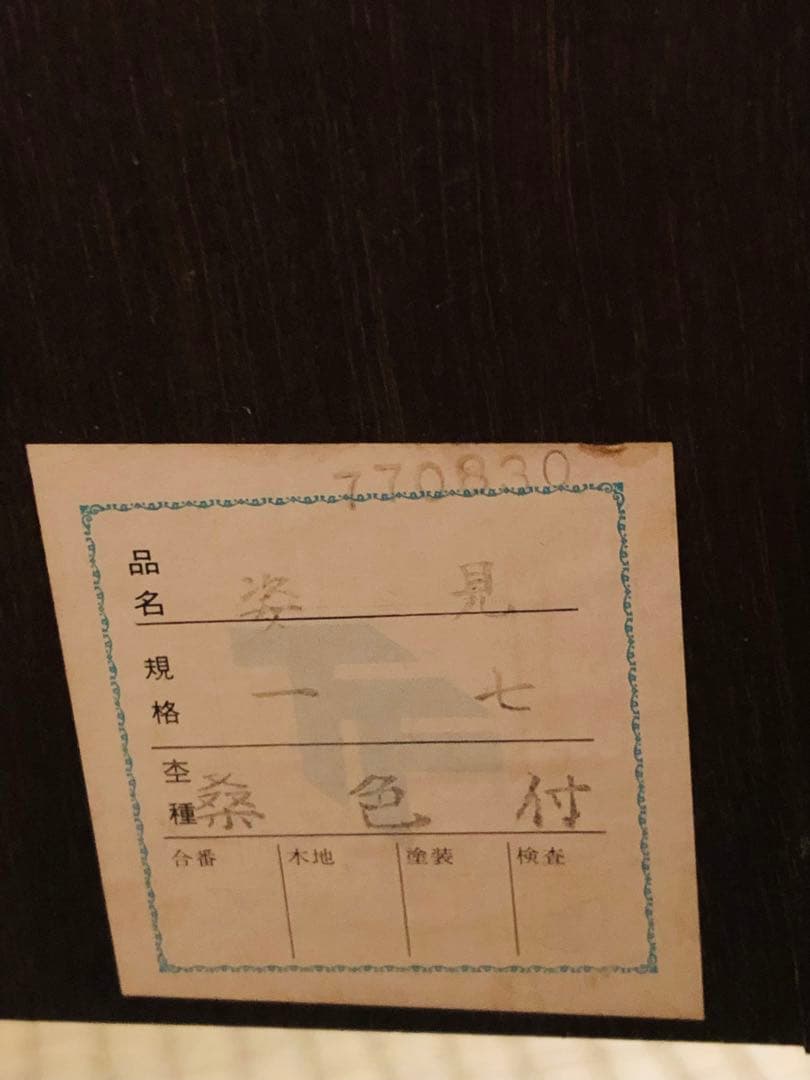 770830
品名 姿見
規格 一七
杢種 桑色付
合番 木地 塗装 検査